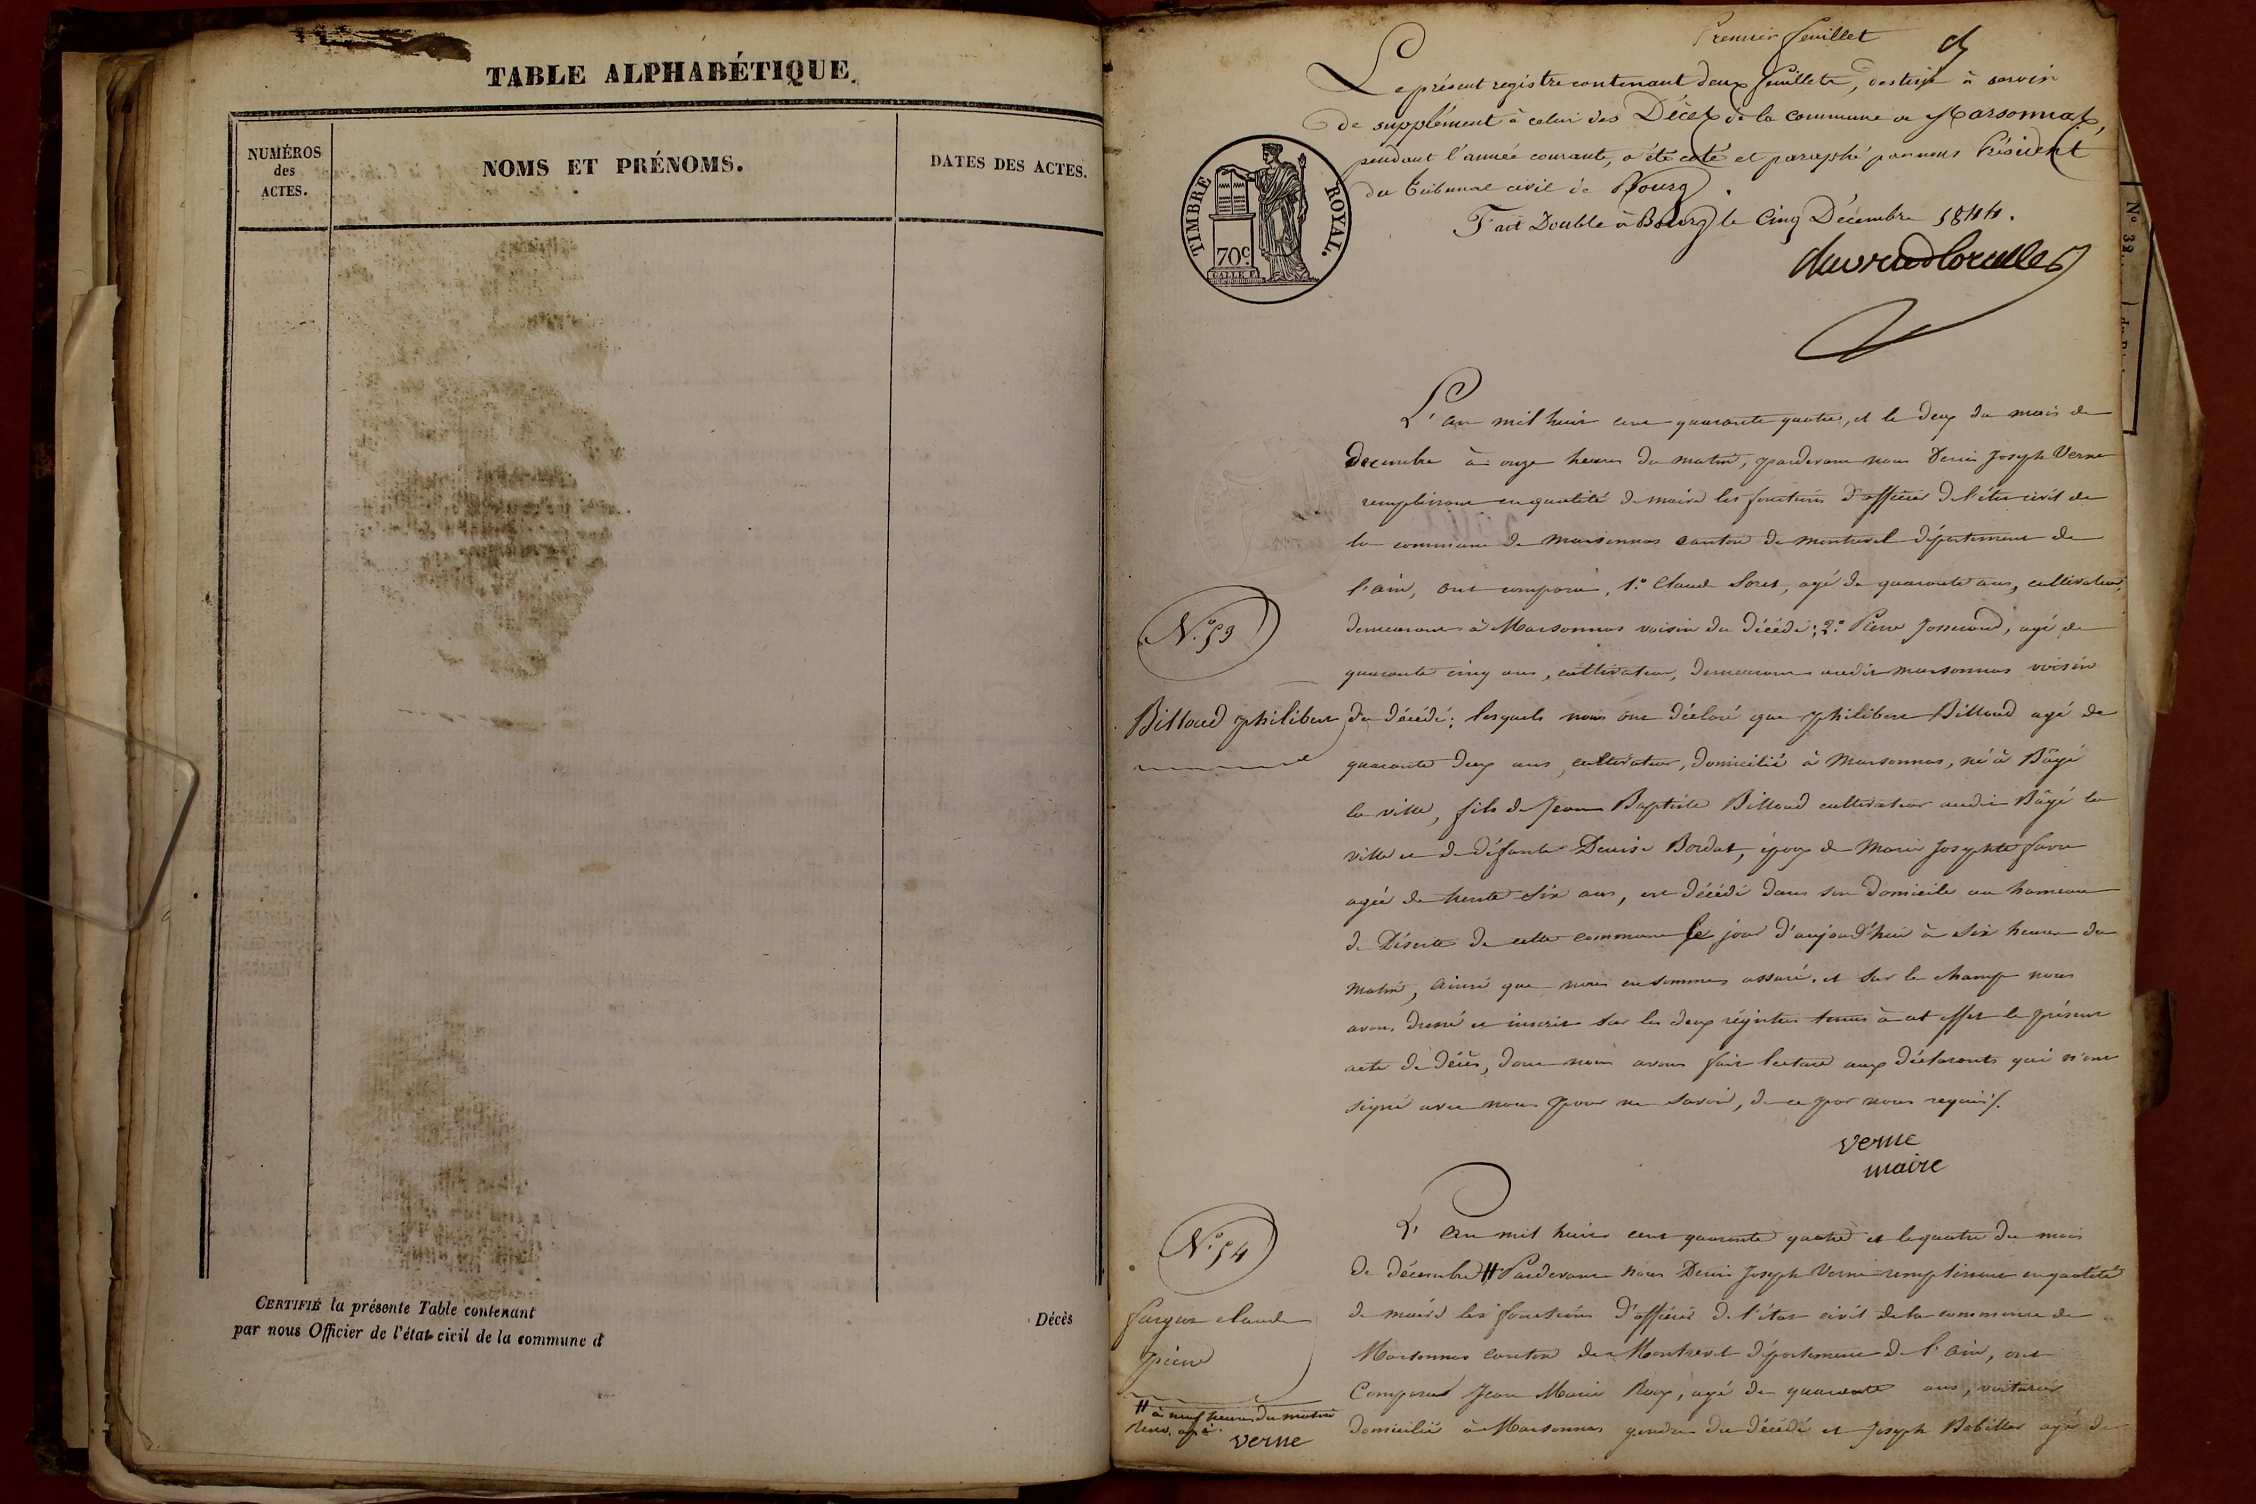 TABLE ALPHABÉTIQUE.
NUMÉROS
des
ACTES.
NOMS ET PRÉNOMS.
DATES DES ACTES.
CERTIFIÉ la présente Table contenant
Décès
par nous Officier de l'état civil de la commune d
Premier feuillet
Le présent registre contenant deux feuillets, destiné à servir
de supplément à celui des Décès de la commune de Marsonnas,
pendant l'année courante, a été coté et paraphé par nous Président
du Tribunal civil de Bourg.
Fait Double à Bourg le Cinq Décembre 1844.
TIMBRE ROYAL.
70c.
N° 32
L'an mil huit cent quarante quatre, et le deux du mois de
decembre à onze heures du matin, pardevant nous Denis Joseph Verne
remplissant en qualité de maire les fonctions d'officier de l'état civil de
la commune de Marsonnas canton de Montrevel département de
l'ain, ont comparu, 1.° Claude Soret, agé de quarante ans, cultivateur,
demeurant à Marsonnas voisin du décédé; 2.° Pierre Josserand, agé de
quarante cinq ans, cultivateur, demeurant audit marsonnas voisin
N.° 53
Billoud philibert
du décédé; lesquels nous ont déclaré que philibert Billoud agé de
quarante deux ans, cultivateur, domicilié à Marsonnas, né à Bâgé
la ville, fils de Jean Baptiste Billoud cultivateur audit Bâgé la
ville et de défunte Denise Bordat, époux de Marie Josephte favre
agée de trente six ans, est décédé dans son domicile au hameau
de Déserte de cette commune le jour d'aujourd'hui à six heures du
matin, ainsi que nous en sommes assuré, et sur le champ nous
avons dressé et inscrit sur les deux régistres tenus à cet effet le présent
acte de décès, dont nous avons fait lecture aux déclarants qui n'ont
signé avec nous pour ne savoir, de ce par nous requis.
Verne
maire
N.° 54
L'an mil huit cent quarante quatre et le quatre du mois
de décembre # Pardevant nous Denis Joseph Verne remplissant en qualité
de maire les fonctions d'officier de l'état civil de la commune de
Marsonnas canton de Montrevel département de l'ain, ont
Comparu Jean Marie Roux, agé de quarante ans, voiturier
domicilié à Marsonnas gendre du décédé et Joseph Bobillar agé de
claude
pierre
# à neuf heures du matin
Verne